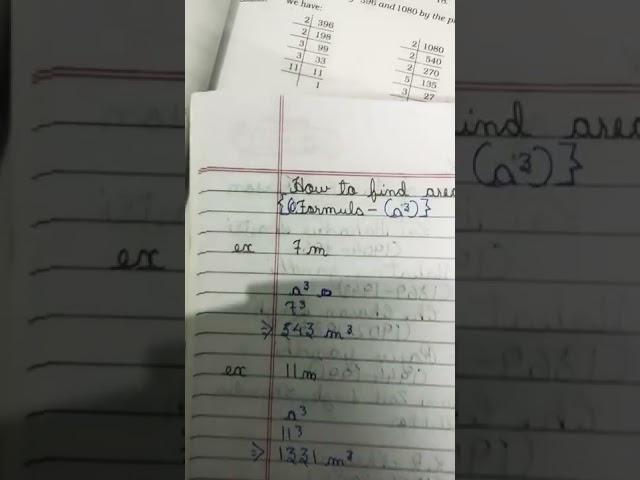 396 and 1080 by the p
we have:
2 396
2 198
3 99
3 33
11 11
1
2 1080
2 540
2 270
5 135
3 27
How to find area
{Formula - (a³)}
ex 7 m
a³
7³
⇒ 343 m³
ex 11 m
a³
11³
⇒ 1331 m³